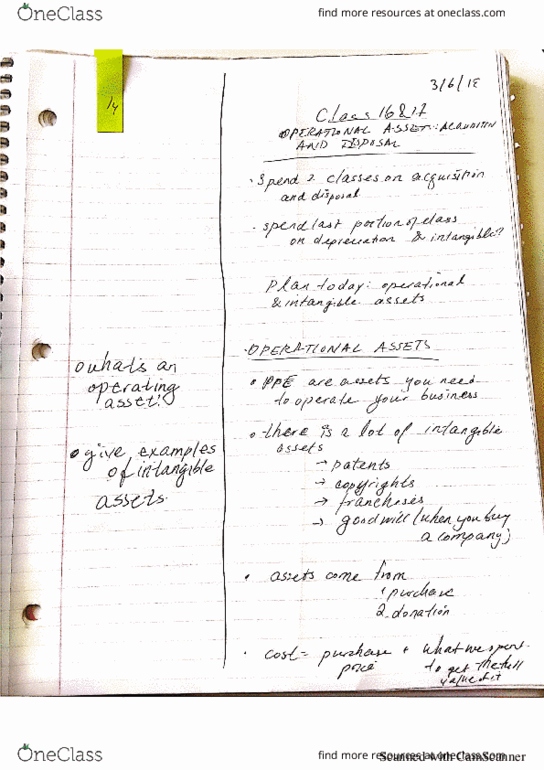 OneClass
find more resources at oneclass.com
3/6/18
Class 16 & 17
OPERATIONAL ASSET: ACQUISITION
AND DISPOSAL
· Spend 2 classes on acquisition
and disposal
· spend last portion of class
on depreciation & intangible?
Plan today: operational
& intangible assets
· OPERATIONAL ASSETS
o what is an
operating
asset?
• PPE are assets you need
to operate your business
• there is a lot of intangible
assets
• give examples
of intangible
assets
→ patents
→ copyrights
→ franchises
→ goodwill (when you buy
a company)
• assets come from
1 purchase
2 donation
· cost = purchase + what we spent
price to get the full
value of it
OneClass
find more resources at oneclass.com
Scanned with CamScanner